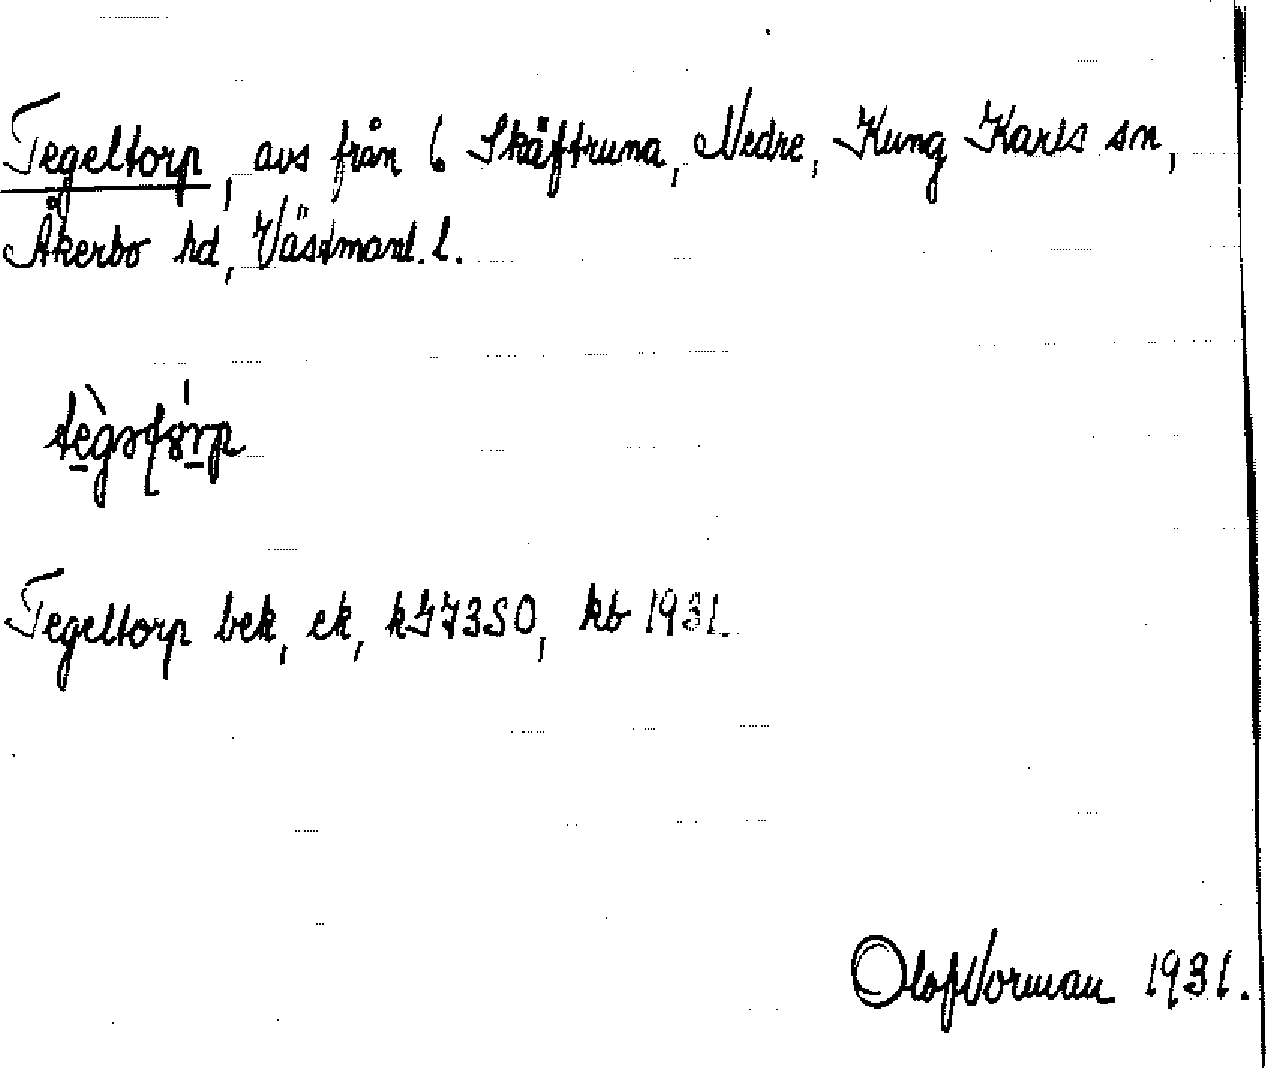 Tegeltorp, avs från 6 Skäftruna, Nedre, Kung Karls sn,
Åkerbo hd, Västmanl. l.
Tegeltorp bek, ek, kb 1931.
Olof Norman 1931.